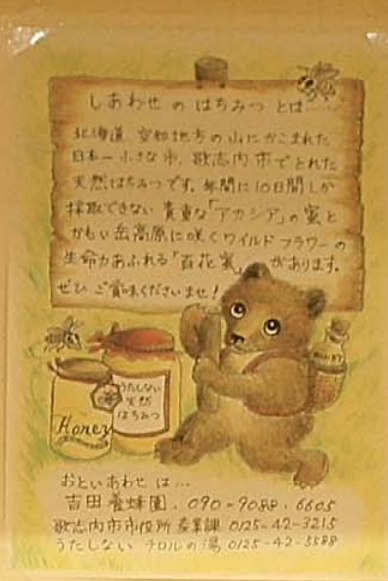 しあわせ の はちみつ とは……
北海道 空知地方の山にかこまれた
日本一小さな市、歌志内市でとれた
天然はちみつです。年間に10日間しか
採取できない 貴重な「アカシア」の蜜と
かもい岳高原に咲くワイルドフラワーの
生命力あふれる「百花蜜」 があります。
ぜひ ご賞味くださいませ!
うたしない
天然
はちみつ
Honey
おといあわせ は…
吉田養蜂園. 090-9088-6605
歌志内市市役所 産業課 0125-42-3215
うたしない チロルの湯 0125-42-5588